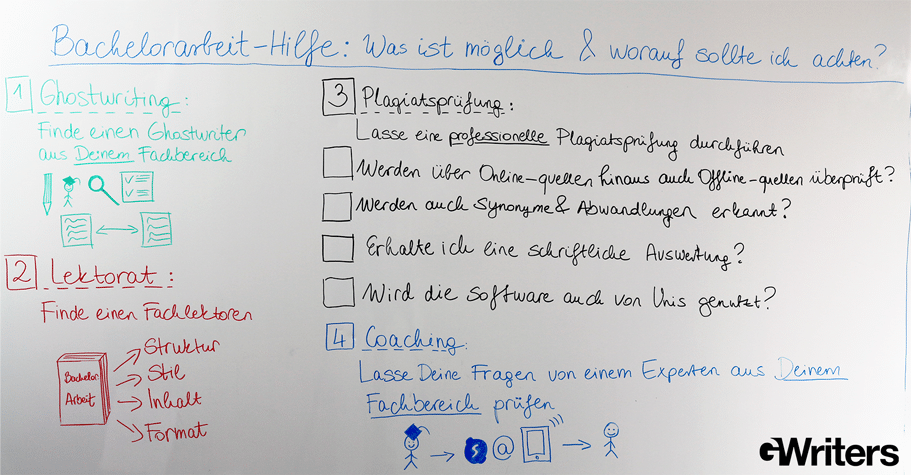 Bachelorarbeit-Hilfe: Was ist möglich & worauf sollte ich achten?
1 Ghostwriting:
Finde einen Ghostwriter
aus Deinem Fachbereich
2 Lektorat:
Finde einen Fachlektoren
Bachelor
Arbeit
Struktur
Stil
Inhalt
Format
3 Plagiatsprüfung:
Lasse eine professionelle Plagiatsprüfung durchführen
Werden über Online-quellen hinaus auch Offline-quellen überprüft?
Werden auch Synonyme & Abwandlungen erkannt?
Erhalte ich eine schriftliche Auswertung?
Wird die Software auch von Unis genutzt?
4 Coaching:
Lasse Deine Fragen von einem Experten aus Deinem
Fachbereich prüfen
@
eWriters